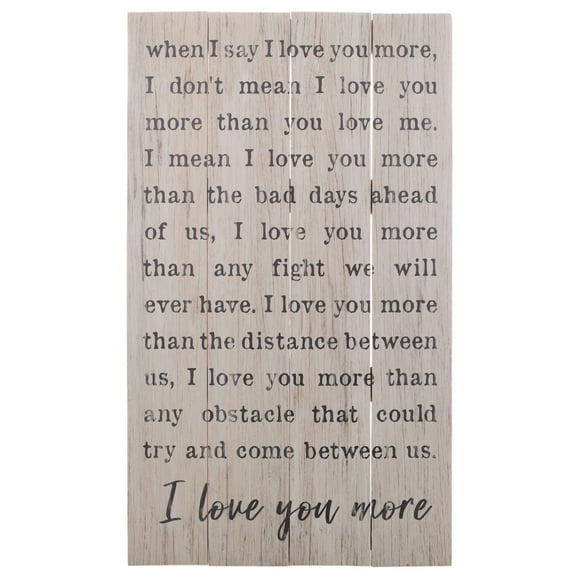 when I say I love you more,
I don't mean I love you
more than you love me.
I mean I love you more
than the bad days ahead
of us, I love you more
than any fight we will
ever have. I love you more
than the distance between
us, I love you more than
any obstacle that could
try and come between us.
I love you more